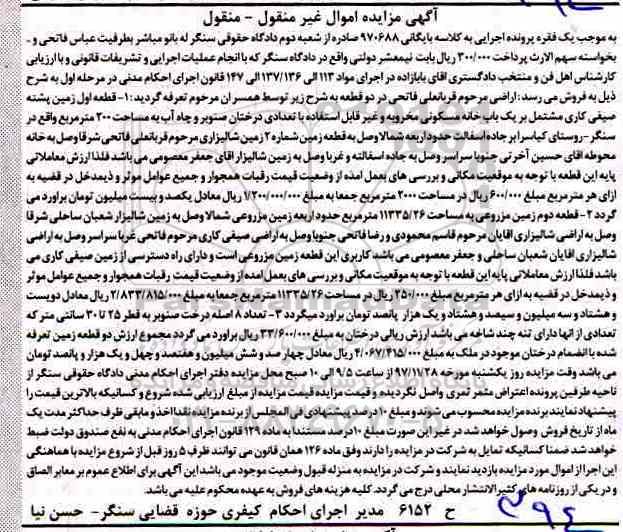 آگهی مزایده اموال غیر منقول - منقول
به موجب یک فقره پرونده اجرایی به کلاسه بایگانی ۹۷۰۶۸۸ صادره از شعبه دوم دادگاه حقوقی سنگر له بانو مباشر بطرفیت عباس فاتحی و -
بخواسته سهم الارث پرداخت ۳۰۰/۰۰۰ ریال بابت نیمعشر دولتی واقع در دادگاه سنگر که با انجام عملیات اجرایی و تشریفات قانونی و با ارزیابی
کارشناس اهل فن و منتخب دادگستری اقای بابازاده در اجرای مواد ۱۱۳ الی ۱۳۷/۱۳۶ و ۱۴۷ قانون اجرای احکام مدنی در مرحله اول به شرح
ذیل به فروش می رسد: اراضی مرحوم قربانعلی فاتحی در دو قطعه به شرح زیر توسط همسر ان مرحوم تعرفه گردید: ۱- قطعه اول زمین پشته
صیفی کاری مشتمل بر یک باب خانه مسکونی مخروبه و غیر قابل استفاده با تعدادی درختان صنوبر و چاه آب به مساحت ۲۰۰۰ مترمربع واقع در
سنگر -روستای کیاسرابر جاده اسفالت حدود اربعه شمالا وصل به قطعه زمین شماره ۲ زمین شالیزاری مرحوم قربانعلی فاتحی شرقا وصل به خانه
محوطه اقای حسین آخرتی جنوبا سراسر وصل به جاده اسفالته و غربا وصل به زمین شالیزار اقای جعفر معصومی می باشد فلذا ارزش معاملاتی
پایه این قطعه با توجه به موقعیت مکانی و بررسی های بعمل امده از وضعیت قیمت رقبات همجوار و جمیع عوامل موثر و ذیمدخل در قضیه به
ازای هر مترمربع مبلغ ۶۰۰/۰۰۰ ریال در مساحت ۲۰۰۰ مترمربع جمعا به مبلغ ۱/۲۰۰/۰۰۰/۰۰۰ ریال معادل یکصد و بیست میلیون تومان براورد می
گردد ۲- قطعه دوم زمین مزروعی به مساحت ۱۱۳۳۵/۲۶ مترمربع حدود اربعه زمین مزروعی شمالا وصل به زمین شالیزار شعبان ساحلی شرقا
وصل به اراضی شالیزاری اقایان مرحوم قاسم محمودی و رضا فاتحی جنوبا وصل به اراضی صیفی کاری مرحوم فاتحی غربا سراسر وصل به اراضی
شالیزاری اقایان شعبان ساحلی و جعفر معصومی می باشد کاربری این قطعه زمین مزروعی است و دارای راه دسترسی از زمین صیفی کاری می
باشد فلذا ارزش معاملاتی پایه این قطعه با توجه به موقعیت مکانی و بررسی های بعمل امده از وضعیت قیمت رقبات همجوار و جمیع عوامل موثر
و ذیمدخل در قضیه به ازای هر مترمربع مبلغ ۲۵۰/۰۰۰ ریال در مساحت ۱۱۳۳۵/۲۶ مترمربع جمعا به مبلغ ۲/۸۳۳/۸۱۵/۰۰۰ ریال معادل دویست
و هشتاد و سه میلیون و سیصد و هشتاد و یک هزار پانصد تومان براورد میگردد ۳- تعداد ۸ اصله درخت صنوبر به قطر ۲۵ تا ۳۰ سانتی متر که
تعدادی از انها دارای تنه چند شاخه می باشد ارزش ریالی درختان به مبلغ ۳۳/۶۰۰/۰۰۰ ریال براورد می گردد مجموع ارزش دو قطعه زمین تعرفه
شده با انضمام درختان موجود در ملک به مبلغ ۴/۰۶۷/۴۱۵/۰۰۰ ریال معادل چهار صد و شش میلیون و هفتصد و چهل و یک هزار و پانصد تومان
می باشد وقت مزایده روز یکشنبه مورخه ۹۷/۱۱/۲۸ از ساعت ۹/۵ الی ۱۰ صبح محل مزایده دفتر اجرای احکام مدنی دادگاه حقوقی سنگر از
ناحیه طرفین پرونده اعتراض مثمر ثمری واصل نگردیده و قیمت مزایده قیمت مزایده از مبلغ ارزیابی شده شروع و کسانیکه بالاترین قیمت را
پیشنهاد نمایند برنده مزایده محسوب می شوند و مبلغ ۱۰ درصد پیشنهادی فی المجلس از برنده مزایده نقدا اخذ و مابقی ظرف حداکثر مدت یک
ماه از تاریخ فروش وصول خواهد شد در غیر این صورت مبلغ ۱۰ درصد مستندا به ماده ۱۲۹ قانون اجرای احکام مدنی به نفع صندوق دولت ضبط
خواهد شد ضمنا کسانیکه تمایل به شرکت در مزایده را دارند وفق ماده ۱۲۶ همان قانون می توانند ظرف ۵ روز قبل از شروع مزایده با هماهنگی
این اجرا از اموال مورد مزایده بازدید نمایند و شرکت در مزایده به منزله قبول وضعیت موجود می باشد این آگهی برای اطلاع عموم بر معابر الصاق
و در یکی از روزنامه های کثیرالانتشار محلی درج می گردد. کلیه هزینه های فروش به عهده محکوم علیه می باشد.
ح ۶۱۵۲ مدیر اجرای احکام کیفری حوزه قضایی سنگر- حسن نیا